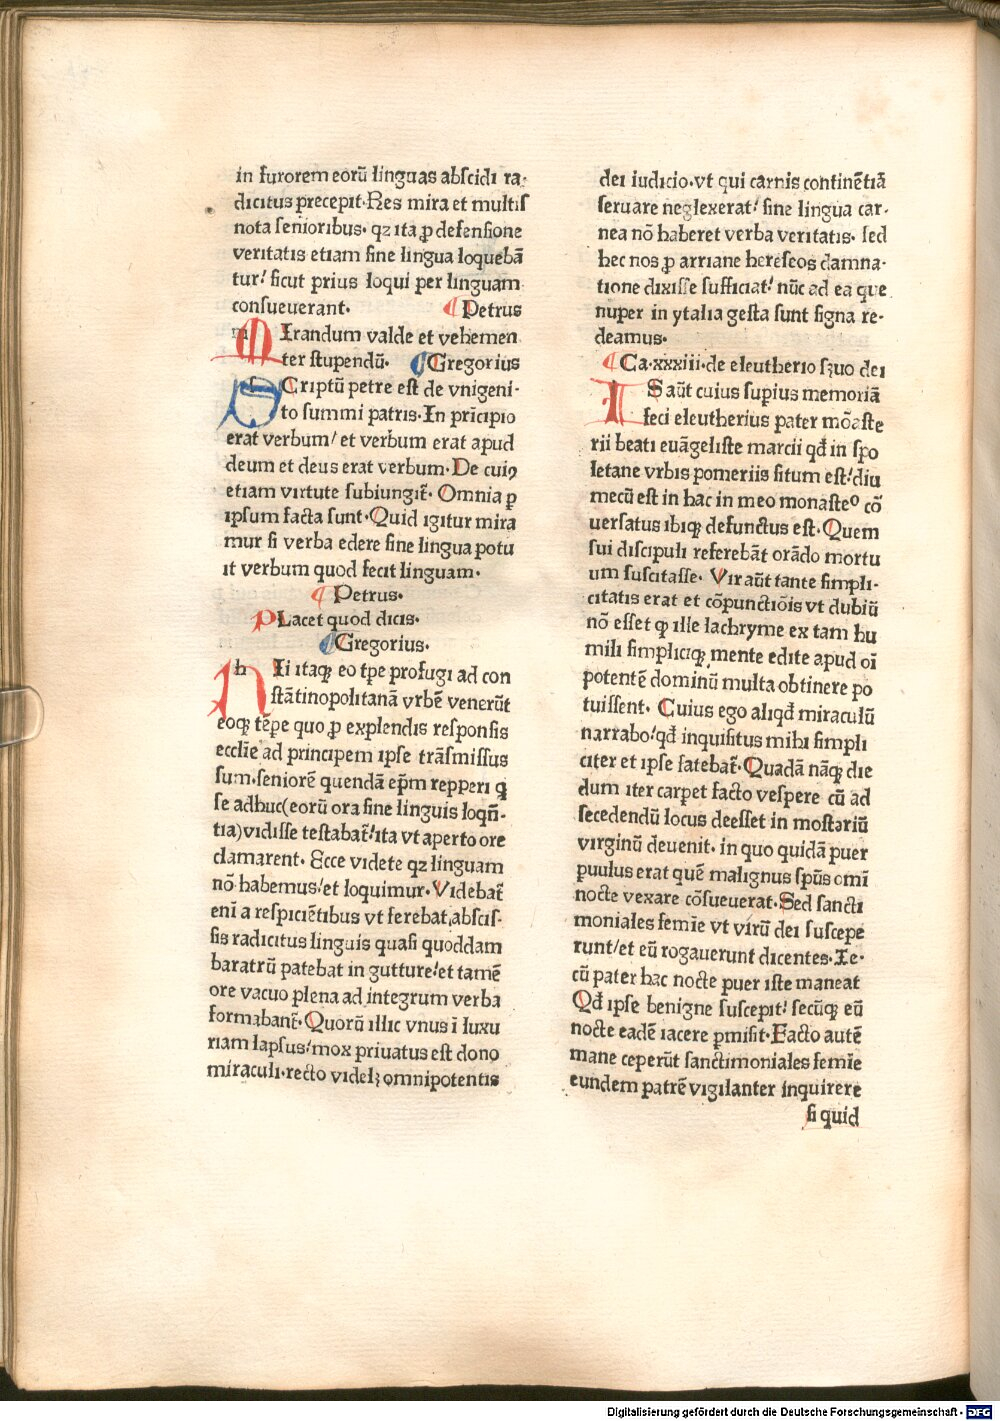 in furorem eorū linguas abſcidi ra-
dicitus precepit. Res mira et multiſ
nota ſenioribus. qꝫ ita ꝓ defenſione
veritatis etiam ſine lingua loquebā
tur/ ſicut prius loqui per linguam
conſueuerant. ¶ Petrus
MIrandum valde et vehemen
ter ſtupendū. ¶ Gregorius
SCriptū petre eſt de vnigeni-
to ſummi patris. In prīcipio
erat verbum/ et verbum erat apud
deum et deus erat verbum. De cuiꝯ
etiam virtute ſubiungit̄. Omnia ꝑ
ipſum facta ſunt. Quid igitur mira
mur ſi verba edere ſine lingua potu
it verbum quod fecit linguam.
¶ Petrus.
pLacet quod dicis.
¶ Gregorius.
hIi itaqꝫ eo tꝑe profugi ad con
ſtātinopolitanā vrbē venerūt
eoqꝫ tēpe quo ꝓ explendis reſponſis
eccl̄ie ad principem ipſe trāſmiſſus
ſum. ſeniorē quendā ep̄m repperi q̄
ſe adhuc (eorū ora ſine linguis loqn̄-
tia) vidiſſe teſtabat̄/ ita vt aperto ore
clamarent. Ecce videte qꝫ linguam
nō habemus/ et loquimur. Videbat̄
eni a reſpiciētibus vt ferebat abſciſ-
ſis radicitus linguis quaſi quoddam
baratrū patebat in gutture/ et tamē
ore vacuo plena ad integrum verba
formabant̄. Quorū illic vnus ī luxu
riam lapſus/ mox priuatus eſt dono
miraculi. recto videlꝫ omnipotentis
dei iudicio. vt qui carnis continētiā
ſeruare neglexerat/ ſine lingua car-
nea nō haberet verba veritatis. ſed
hec nos ꝓ arriane hereſeos damna-
tione dixiſſe ſufficiat/ nūc ad ea que
nuper in ytalia geſta ſunt ſigna re-
deamus.
¶ Ca. xxxiii. de eleutherio ſꝫuo dei
ISaūt cuius ſupius memoriā
feci eleutherius pater mōaſte
rii beati euāgeliſte marcii qd̄ in ſpo
letane vrbis pomeriis ſitum eſt/ diu
mecū eſt in hac in meo monaſteº cō
uerſatus ibiqꝫ defunctus eſt. Quem
ſui diſcipuli referebāt orādo mortu
um ſuſcitaſſe. Vir aūt tante ſimpli-
citatis erat et cōpunctiōis vt dubiū
nō eſſet ꝙ ille lachryme ex tam hu
mili ſimpliciqꝫ mente edite apud oī
potentē dominū multa obtinere po
tuiſſent. Cuius ego aliqd̄ miraculū
narrabo/ qd̄ inquiſitus mihi ſimpli
citer et ipſe fatebat̄. Quadā nāqꝫ die
dum iter carpet facto veſpere cū ad
ſecedendū locus deeſſet in moſtariū
virginū deuenit. in quo quidā puer
puulus erat quē malignus ſpūs omī
nocte vexare cōſueuerat. Sed ſancti
moniales femīe vt virū dei ſuſcepe
runt/ et eū rogauerunt dicentes. Te-
cū pater hac nocte puer iſte maneat
Qd̄ ipſe benigne ſuſcepit/ ſecūqꝫ eū
nocte eadē iacere ꝑmiſit. Facto autē
mane ceperūt ſanctimoniales femīe
eundem patrē vigilanter inquirere
ſi quid
Digitalisierung gefördert durch die Deutsche Forschungsgemeinschaft - DFG